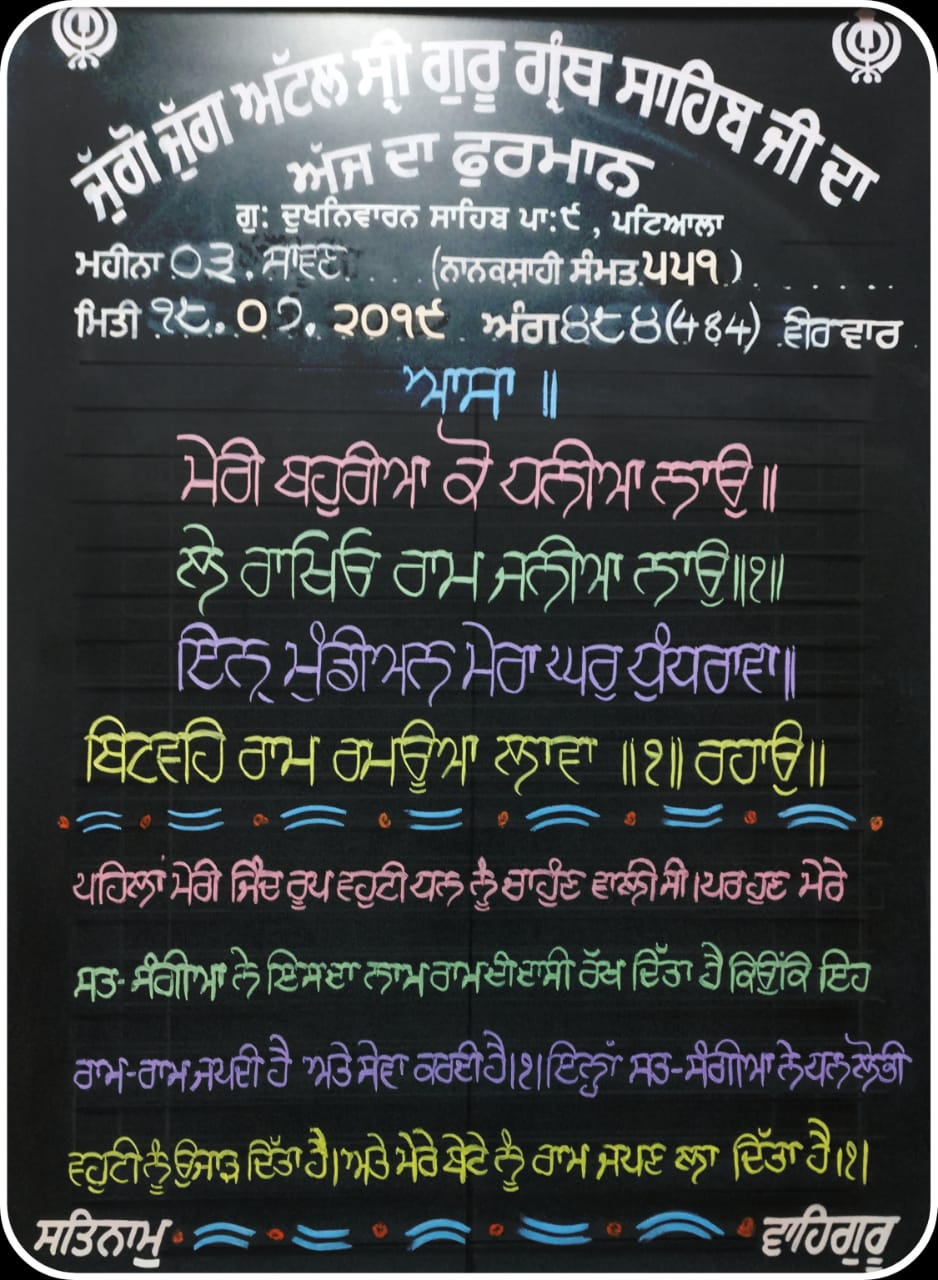 ਜੁੱਗੋ ਜੁੱਗ ਅੱਟਲ ਸ੍ਰੀ ਗੁਰੂ ਗ੍ਰੰਥ ਸਾਹਿਬ ਜੀ ਦਾ
ਅੱਜ ਦਾ ਫੁਰਮਾਨ
ਗੁ: ਦੁਖਨਿਵਾਰਨ ਸਾਹਿਬ ਪਾ:੯ , ਪਟਿਆਲਾ
ਮਹੀਨਾ ੦੩. ਸਾਵਣ (ਨਾਨਕਸ਼ਾਹੀ ਸੰਮਤ ੫੫੧ )
ਮਿਤੀ ੧੮. ੦੭. ੨੦੧੯ ਅੰਗ ੪੮੪ (484) ਵੀਰਵਾਰ
ਆਸਾ ॥
ਮੇਰੀ ਬਹੁਰੀਆ ਕੋ ਧਨੀਆ ਨਾਉ॥
ਲੇ ਰਾਖਿਓ ਰਾਮ ਜਨੀਆ ਨਾਉ॥੧॥
ਇਨ੍ ਮੁੰਡੀਅਨ ਮੇਰਾ ਘਰੁ ਧੁੰਧਰਾਵਾ॥
ਬਿਟਵਹਿ ਰਾਮ ਰਮਊਆ ਲਾਵਾ ॥੧॥ ਰਹਾਉ॥
ਪਹਿਲਾਂ ਮੇਰੀ ਜਿੰਦ ਰੂਪ ਵਹੁਟੀ ਧਨ ਨੂੰ ਚਾਹੁੰਣ ਵਾਲੀ ਸੀ। ਪਰ ਹੁਣ ਮੇਰੇ
ਸਤ-ਸੰਗੀਆ ਨੇ ਇਸਦਾ ਨਾਮ ਰਾਮ ਦੀ ਦਾਸੀ ਰੱਖ ਦਿੱਤਾ ਹੈ ਕਿਉਂਕਿ ਇਹ
ਰਾਮ-ਰਾਮ ਜਪਦੀ ਹੈ ਅਤੇ ਸੇਵਾ ਕਰਦੀ ਹੈ।੧।ਇਨ੍ਹਾਂ ਸਤ-ਸੰਗੀਆ ਨੇ ਧਨ ਲੋਭੀ
ਵਹੁਟੀ ਨੂੰ ਉਜਾੜ ਦਿੱਤਾ ਹੈ। ਅਤੇ ਮੇਰੇ ਬੇਟੇ ਨੂੰ ਰਾਮ ਜਪਣ ਲਾ ਦਿੱਤਾ ਹੈ।੧।
ਸਤਿਨਾਮੁ ਵਾਹਿਗੁਰੂ